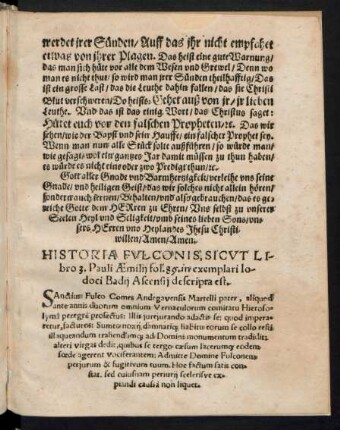 werdet jrer Sünden/ Auff das jhr nicht empfahet
etwas von jhrer Plagen. Das heist eine gute Warnung/
das man sich hüte vor alle dem Wesen vnd Grewel/ Denn wo
man es nicht thut/ so wird man jrer Sünden theilhafftig/ Das
ist ein grosse Last/ das die Leuthe dahin fallen/ das sie Christi
Blut verschweren/ Do heists: Gehet aus von jr/ jr lieben
Leuthe. Vnd das ist das einig Wort/ das Christus saget:
Hütet euch vor den falschen Propheten/ ꝛc. Das wir
sehen/ wie der Bapst vnd sein Hauffe/ ein falscher Prophet sey.
Wenn man nun alle Stück solt außführen/ so würde man/
wie gesagt/ wol ein gantzes Jar damit müssen zu thun haben/
es würde es nicht eine oder zwo Predigt thun/ ꝛc.
Gott aller Gnade vnd Barmhertzigkeit/ verleihe vns seine
Gnade/ vnd heiligen Geist/ das wir solches nicht allein hören/
sondern auch lernen/ Behalten/ vnd also gebrauchen/ das es ge-
reiche Gotte dem HERren zu Ehren/ Vns selbst zu vnserer
Seelen Heyl vnd Seligkeit/ vmb seines lieben Sons/ vn-
sers HErren vnd Heylandes Jhesu Christi
willen/ Amen/ Amen.
HISTORIA FVLCONIS, SICVT LI-
bro 3. Pauli Æmilij fol. 85. in exemplari Io-
doci Badij Ascensij descripta est.
SAnctius Fulco Comes Andegavensis Martelli pater, aliquot
ante annis duorum omnium Vernaculorum comitatu Hieroso-
lymã peregrè profectus: illis jurejurando adactis se: quod impera-
retur, facturos: Sumto
alteri virgas dedit, quibus se tergo cæsum lacerumq; eodem
cæde agerent vociferantem: Admitte Domine Fulconem
perjurum & fugitivum tuum. Hoc factum satis con-
stat. sed cuiusnam perjurij scelerisve ex-
piandi causâ non liquet.